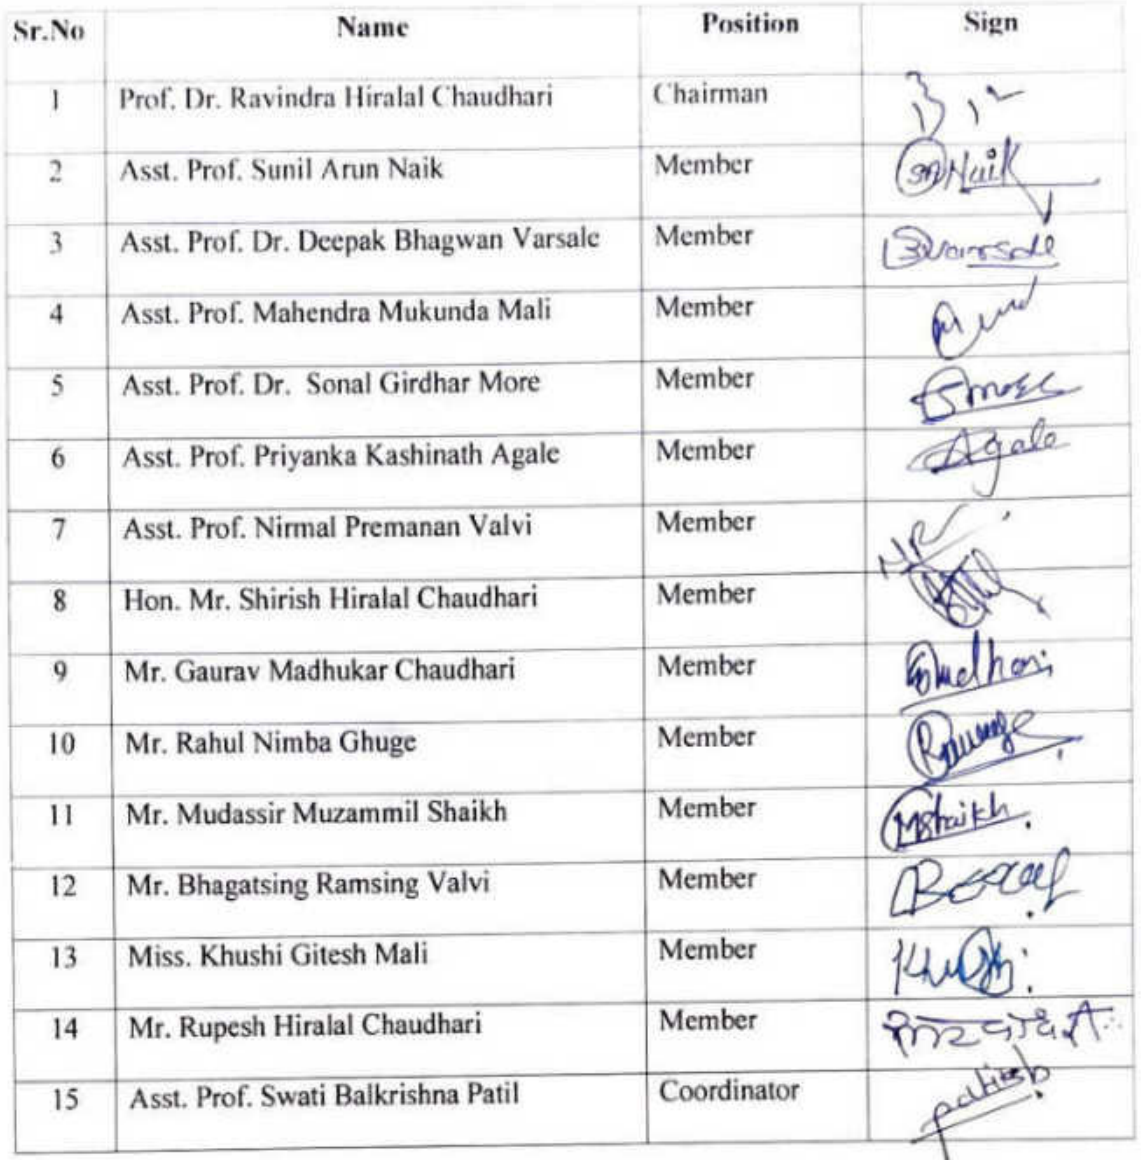 Sr.No Name Position Sign
1 Prof. Dr. Ravindra Hiralal Chaudhari Chairman
2 Asst. Prof. Sunil Arun Naik Member SANaik
3 Asst. Prof. Dr. Deepak Bhagwan Varsale Member
4 Asst. Prof. Mahendra Mukunda Mali Member
5 Asst. Prof. Dr. Sonal Girdhar More Member Smore
6 Asst. Prof. Priyanka Kashinath Agale Member Agale
7 Asst. Prof. Nirmal Premanan Valvi Member
8 Hon. Mr. Shirish Hiralal Chaudhari Member
9 Mr. Gaurav Madhukar Chaudhari Member
10 Mr. Rahul Nimba Ghuge Member
11 Mr. Mudassir Muzammil Shaikh Member MShaikh.
12 Mr. Bhagatsing Ramsing Valvi Member
13 Miss. Khushi Gitesh Mali Member Khushi
14 Mr. Rupesh Hiralal Chaudhari Member
15 Asst. Prof. Swati Balkrishna Patil Coordinator